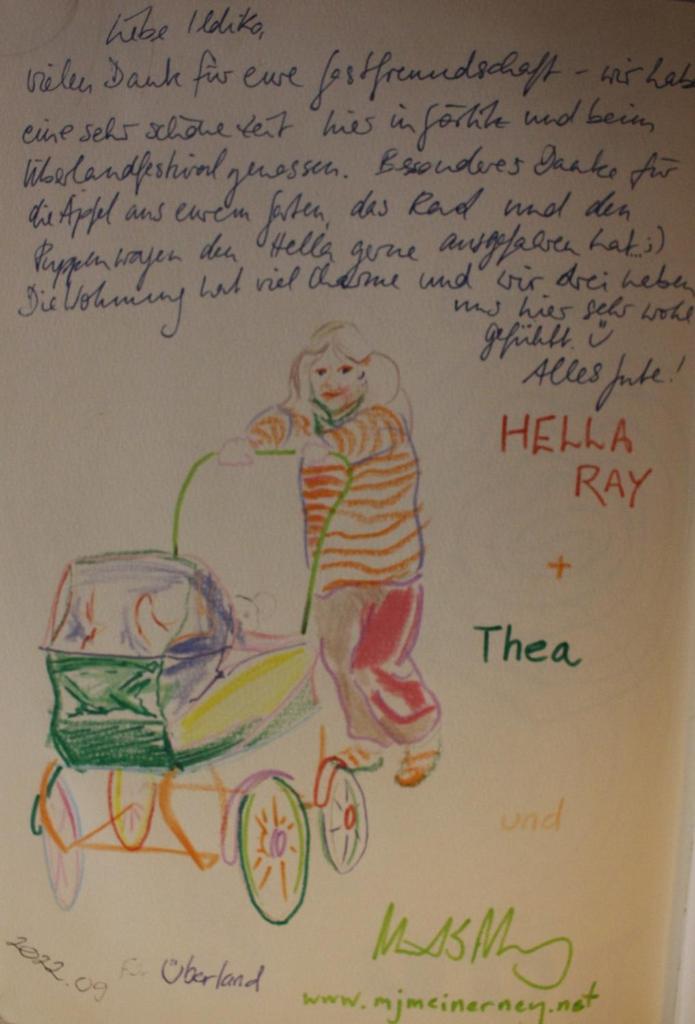 Liebe Ildiko,
vielen Dank für eure Gastfreundschaft – wir hab
eine sehr schöne Zeit hier in Görlitz und beim
Überlandfestival genossen. Besonderes Danke für
die Äpfel aus eurem Garten, das Rad und den
Puppenwagen den Hella gerne ausgefahren hat..;)
Die Wohnung hat viel Charme und wir drei haben
uns hier sehr wohl
gefühlt. ☺
Alles Gute!
HELLA
RAY
+
Thea
und
2022.09
für Überland
www.mjmcinerney.net